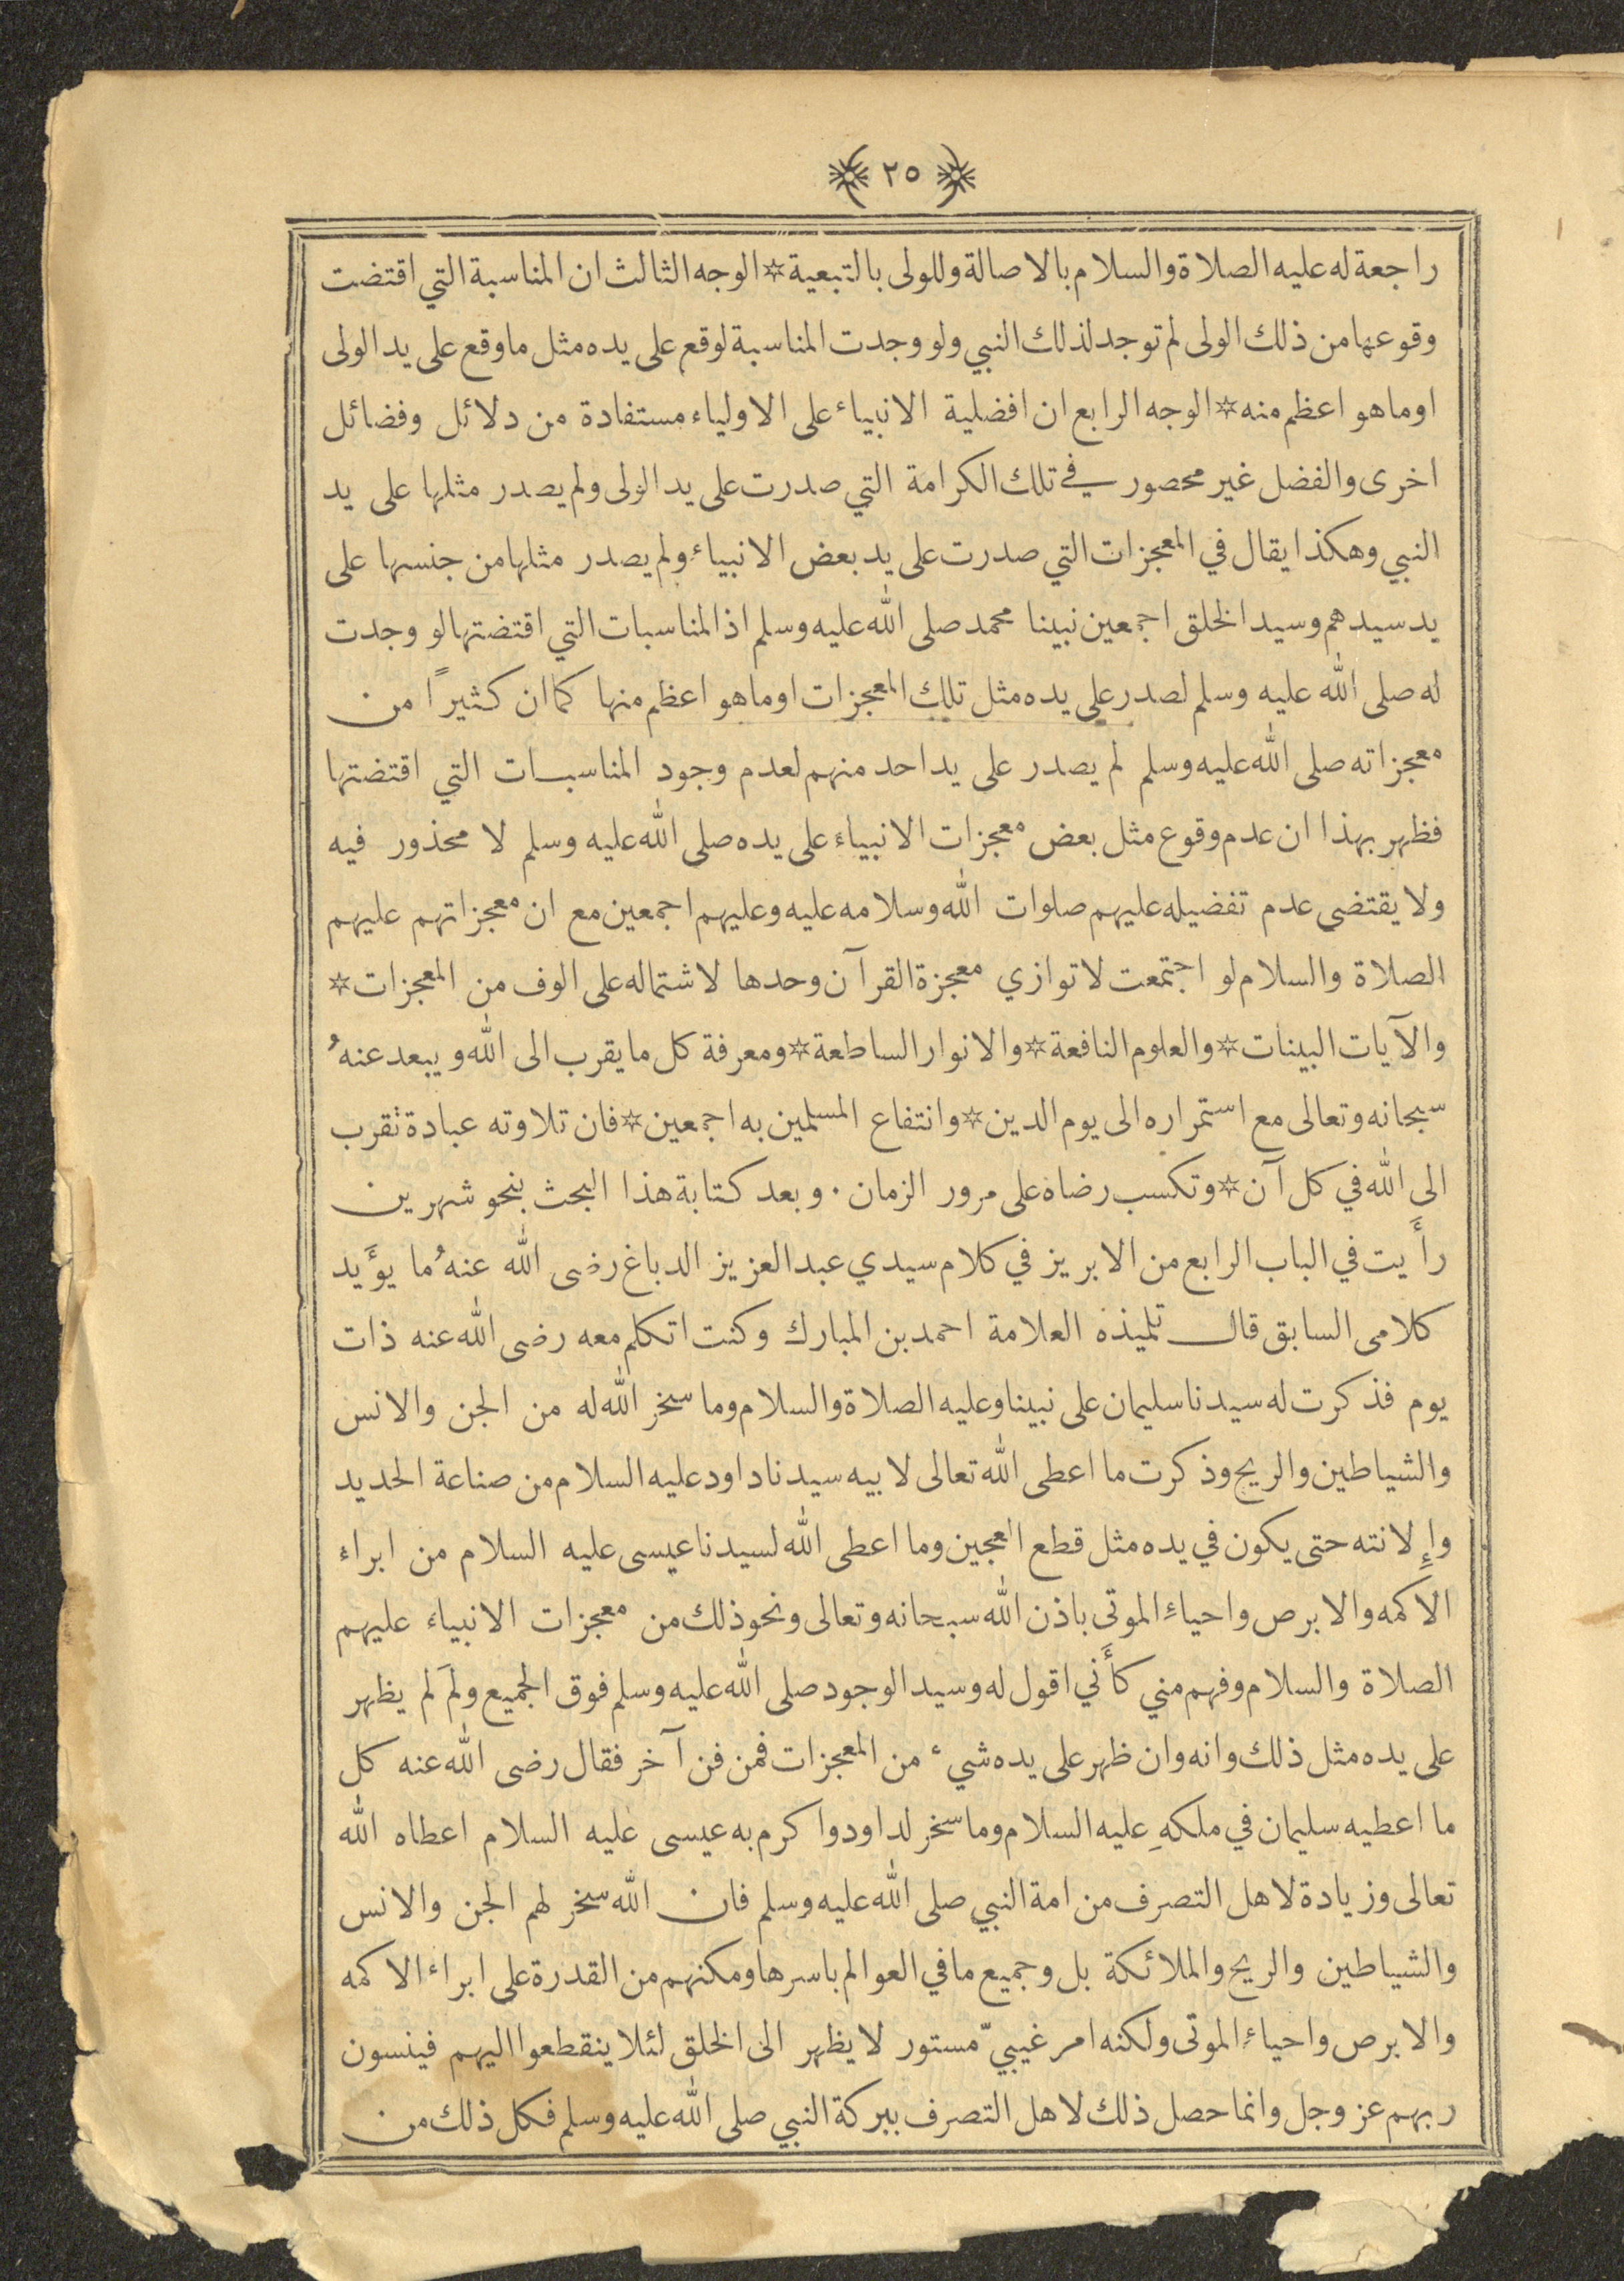 ٢٥
راجعة له عليه الصلاة والسلام بالاصالة وللولى بالتبعية * الوجه الثالث ان المناسبة التي اقتضت
وقوعها من ذلك الولى لم توجد لذلك النبي ولو وجدت المناسبة لوقع على يده مثل ما وقع على يد الولى
او ما هو اعظم منه * الوجه الرابع ان افضلية الانبياء على الاولياء مستفادة من دلائل وفضائل
اخرى والفضل غير محصور في تلك الكرامة التي صدرت على يد الولى ولم يصدر مثلها على يد
النبي وهكذا يقال في المعجزات التي صدرت على يد بعض الانبياء ولم يصدر مثلها من جنسها على
يد سيدهم وسيد الخلق اجمعين نبينا محمد صلى الله عليه وسلم اذ المناسبات التي اقتضتها لو وجدت
له صلى الله عليه وسلم لصدر على يده مثل تلك المعجزات او ما هو اعظم منها كما ان كثيرًا من
معجزاته صلى الله عليه وسلم لم يصدر على يد احد منهم لعدم وجود المناسبات التي اقتضتها
فظهر بهذا ان عدم وقوع مثل بعض معجزات الانبياء على يده صلى الله عليه وسلم لا محذور فيه
ولا يقتضى عدم تفضيله عليهم صلوات الله وسلامه عليه وعليهم اجمعين مع ان معجزاتهم عليهم
الصلاة والسلام لو اجتمعت لا توازي معجزة القرآن وحدها لاشتماله على الوف من المعجزات *
والآيات البينات * والعلوم النافعة * والانوار الساطعة * ومعرفة كل ما يقرب الى الله ويبعد عنهُ
سبحانه وتعالى مع استمراره الى يوم الدين * وانتفاع المسلمين به اجمعين * فان تلاوته عبادة تقرب
الى الله في كل آن * وتكسب رضاه على مرور الزمان . وبعد كتابة هذا البحث بنحو شهرين
رأَيت في الباب الرابع من الابريز في كلام سيدي عبد العزيز الدباغ رضى الله عنهُ ما يؤَيد
كلامى السابق قال تلميذه العلامة احمد بن المبارك وكنت اتكلم معه رضى الله عنه ذات
يوم فذكرت له سيدنا سليمان على نبينا وعليه الصلاة والسلام وما سخر الله له من الجن والانس
والشياطين والريح وذكرت ما اعطى الله تعالى لابيه سيدنا داود عليه السلام من صناعة الحديد
وإِلانته حتى يكون في يده مثل قطع العجين وما اعطى الله لسيدنا عيسى عليه السلام من ابراء
الاكمه والابرص واحياءِ الموتى باذن الله سبحانه وتعالى ونحو ذلك من معجزات الانبياء عليهم
الصلاة والسلام وفهم مني كأَني اقول له وسيد الوجود صلى الله عليه وسلم فوق الجميع ولمَ لم يظهر
على يده مثل ذلك وانه وان ظهر على يده شيء من المعجزات فمن فن آخر فقال رضى الله عنه كل
ما اعطيه سليمان في ملكهِ عليه السلام وما سخر لداود واكرم به عيسى عليه السلام اعطاه الله
تعالى وزيادة لاهل التصرف من امة النبي صلى الله عليه وسلم فان الله سخر لهم الجن والانس
والشياطين والريح والملائكة بل وجميع ما في العوالم باسرها ومكنهم من القدرة على ابراء الاكمه
والابرص واحياءِ الموتى ولكنه امر غيبيّ مستور لا يظهر الى الخلق لئلا ينقطعوا اليهم فينسون
ربهم عز وجل وانما حصل ذلك لاهل التصرف ببركة النبي صلى الله عليه وسلم فكل ذلك من